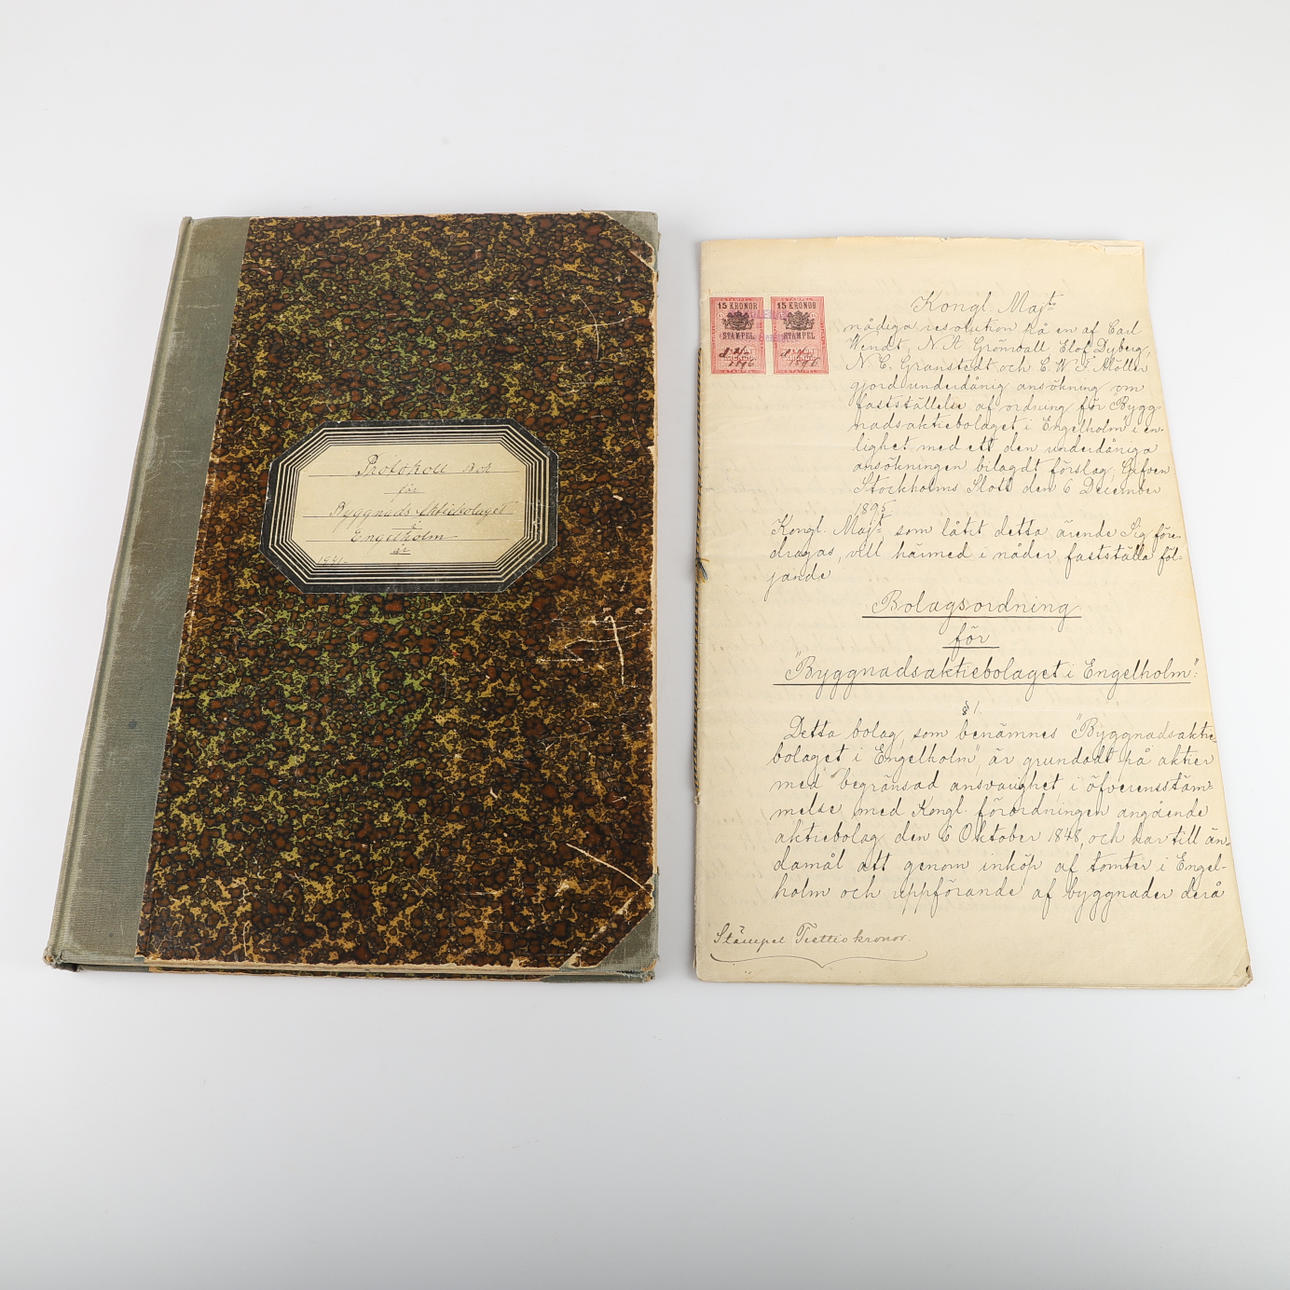 Protokoll Bok
för
Byggnads Aktiebolaget
i
Engelholm
15 KRONOR
STÄMPEL
1896
15 KRONOR
STÄMPEL
1896
Kongl. Majts
nådiga resolution på en af Carl
Wendt, N A Grönvall Elof Dyberg,
N. C. Granstedt och C. W. F. Möller
gjord underdånig ansökning om
fastställelse af ordning för Bygg
nadsaktiebolaget i Engelholm i en-
lighet med ett den underdåniga
ansökningen bilagdt förslag; Gifven
Stockholms Slott den 6 December
1895
Kongl. Majt som låtit detta ärende Sig före-
dragas, vill härmed i nåder fastställa föl-
jande
Bolagsordning
för
"Byggnadsaktiebolaget i Engelholm":
§ 1.
Detta bolag, som benämnes "Byggnadsaktie
bolaget i Engelholm", är grundadt på aktier
med begränsad ansvarighet i öfverensstäm-
melse med Kongl. förordningen angående
aktiebolag den 6 Oktober 1848, och har till än
damål att genom inköp af tomter i Engel-
holm och uppförande af byggnader derå
Stämpel Trettio kronor.